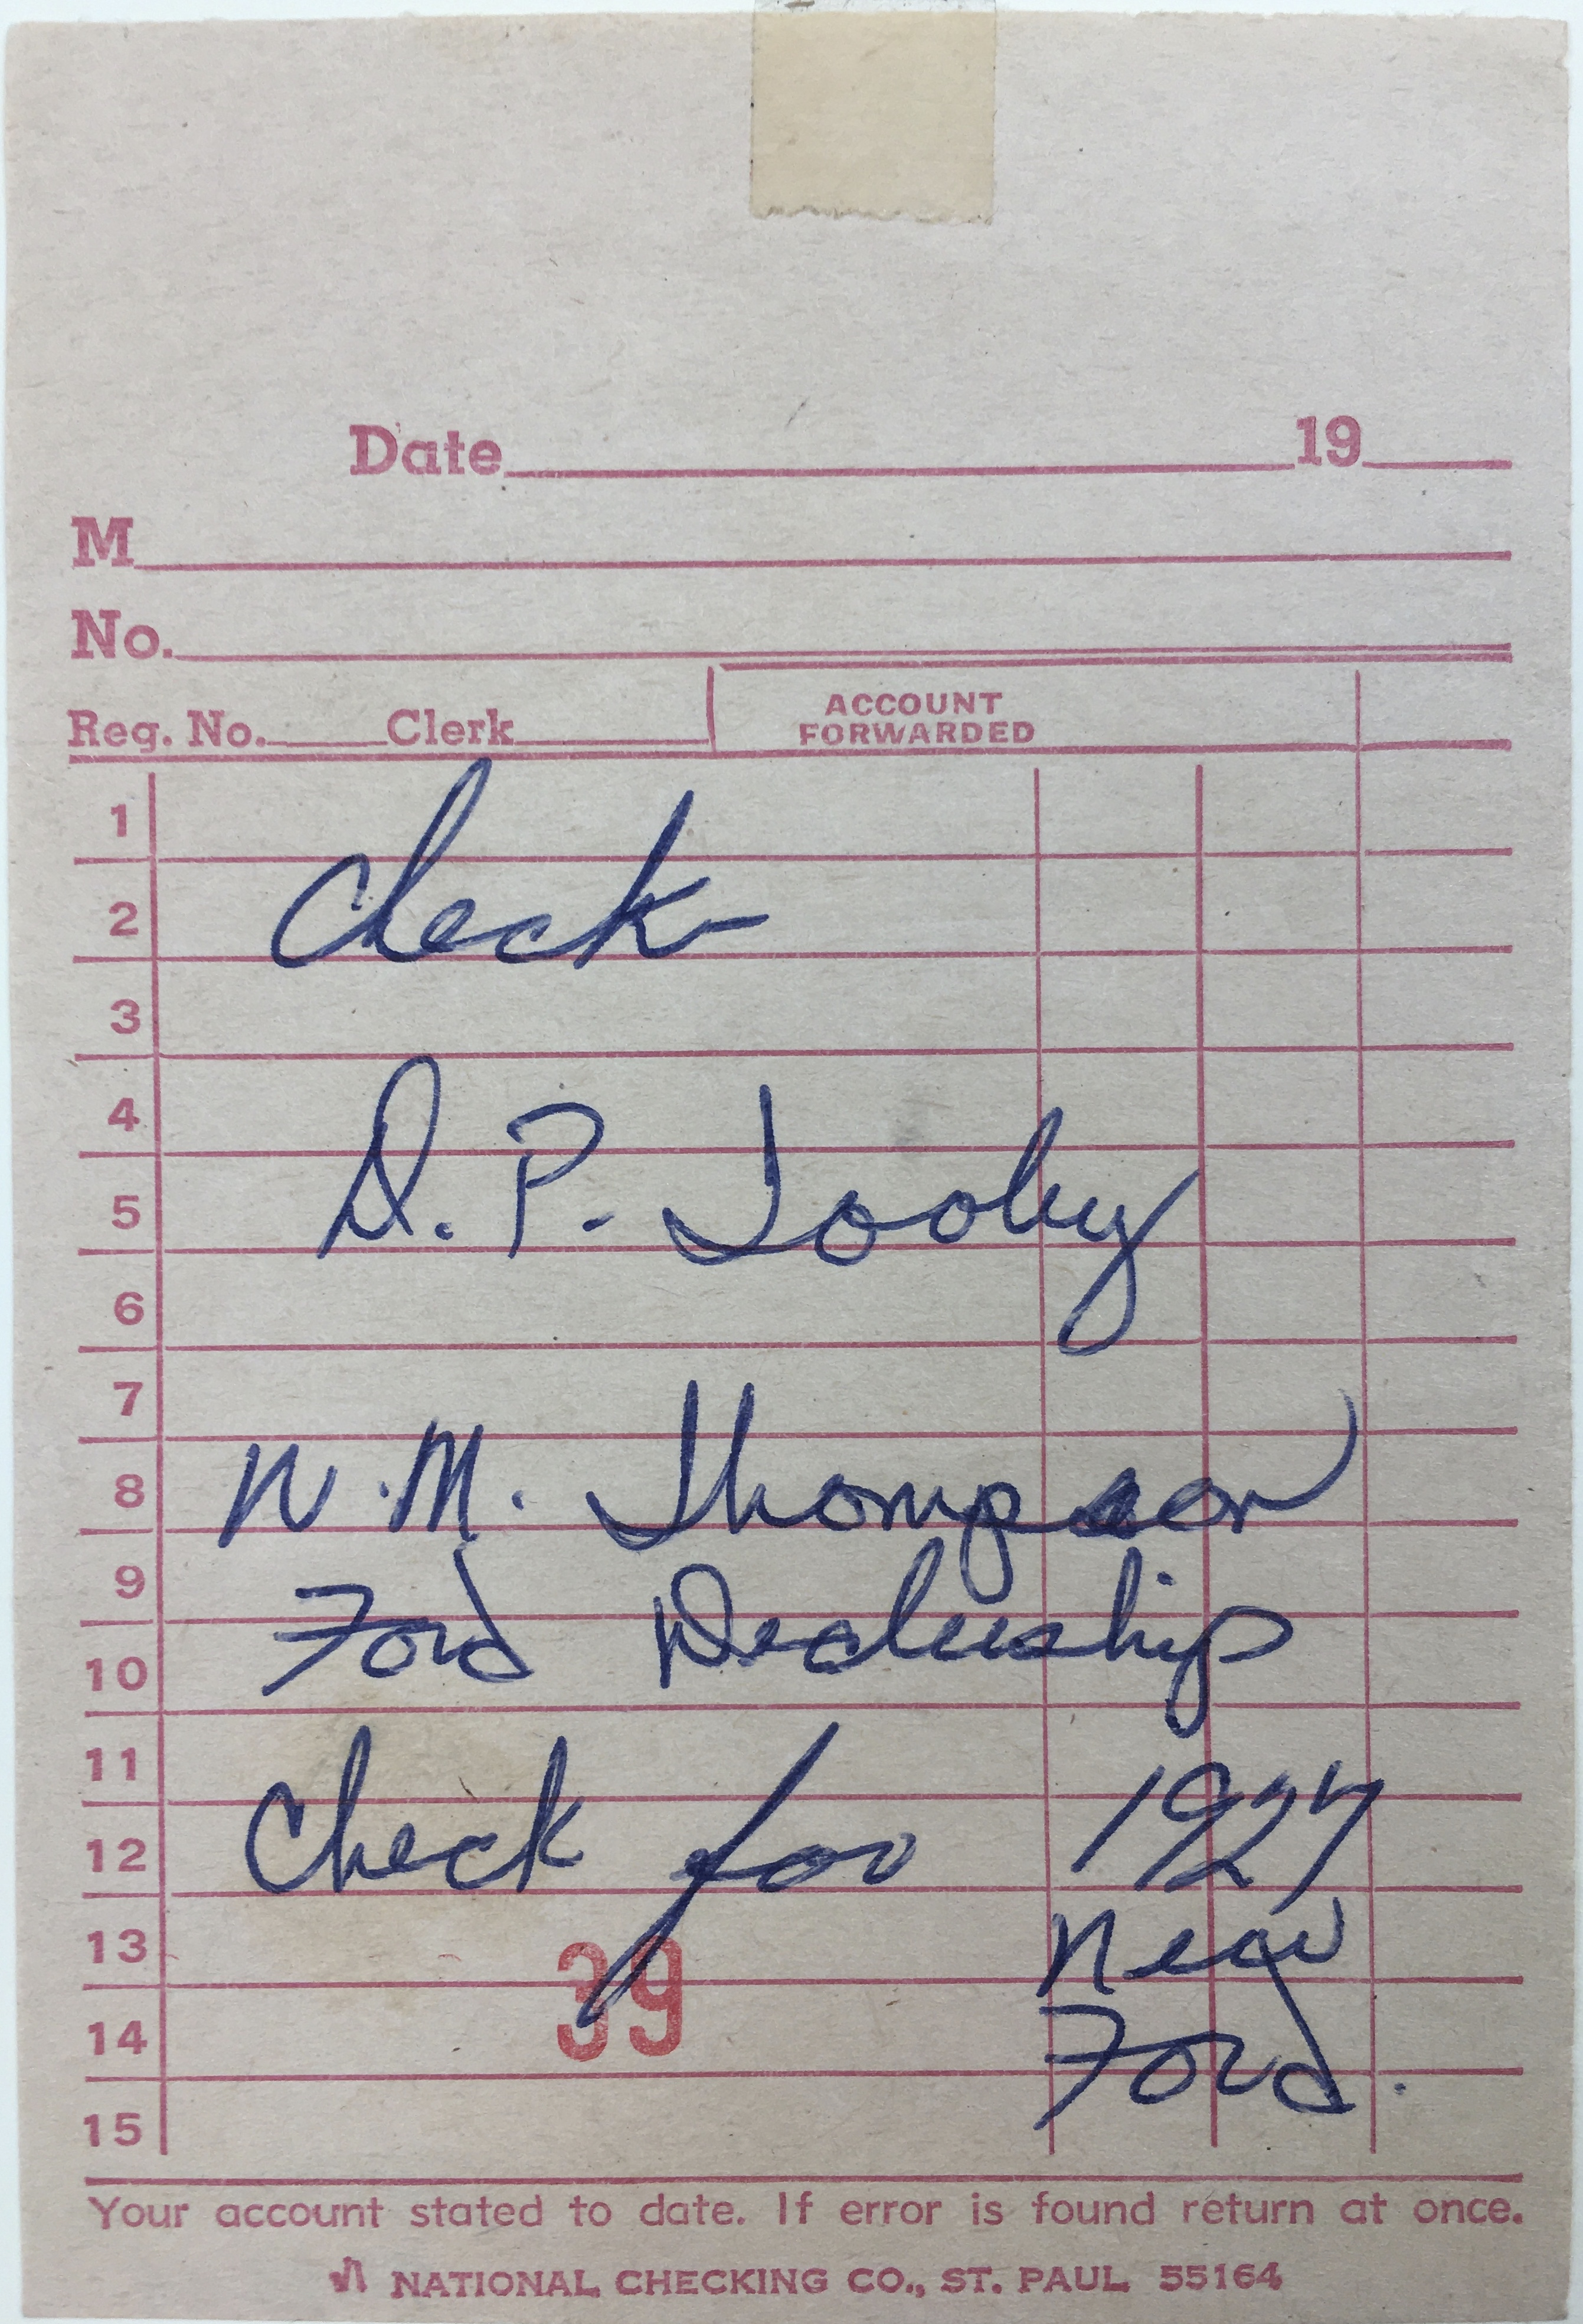 Date 19
M
No.
Reg. No. Clerk ACCOUNT FORWARDED
1
2 Check
3
4
5 D. P. Tooley
6
7
8 W. M. Thompson
9
10 Ford Dealership
11
12 Check for 1927
13 New
39
14 Ford.
15
Your account stated to date. If error is found return at once.
NATIONAL CHECKING CO., ST. PAUL 55164